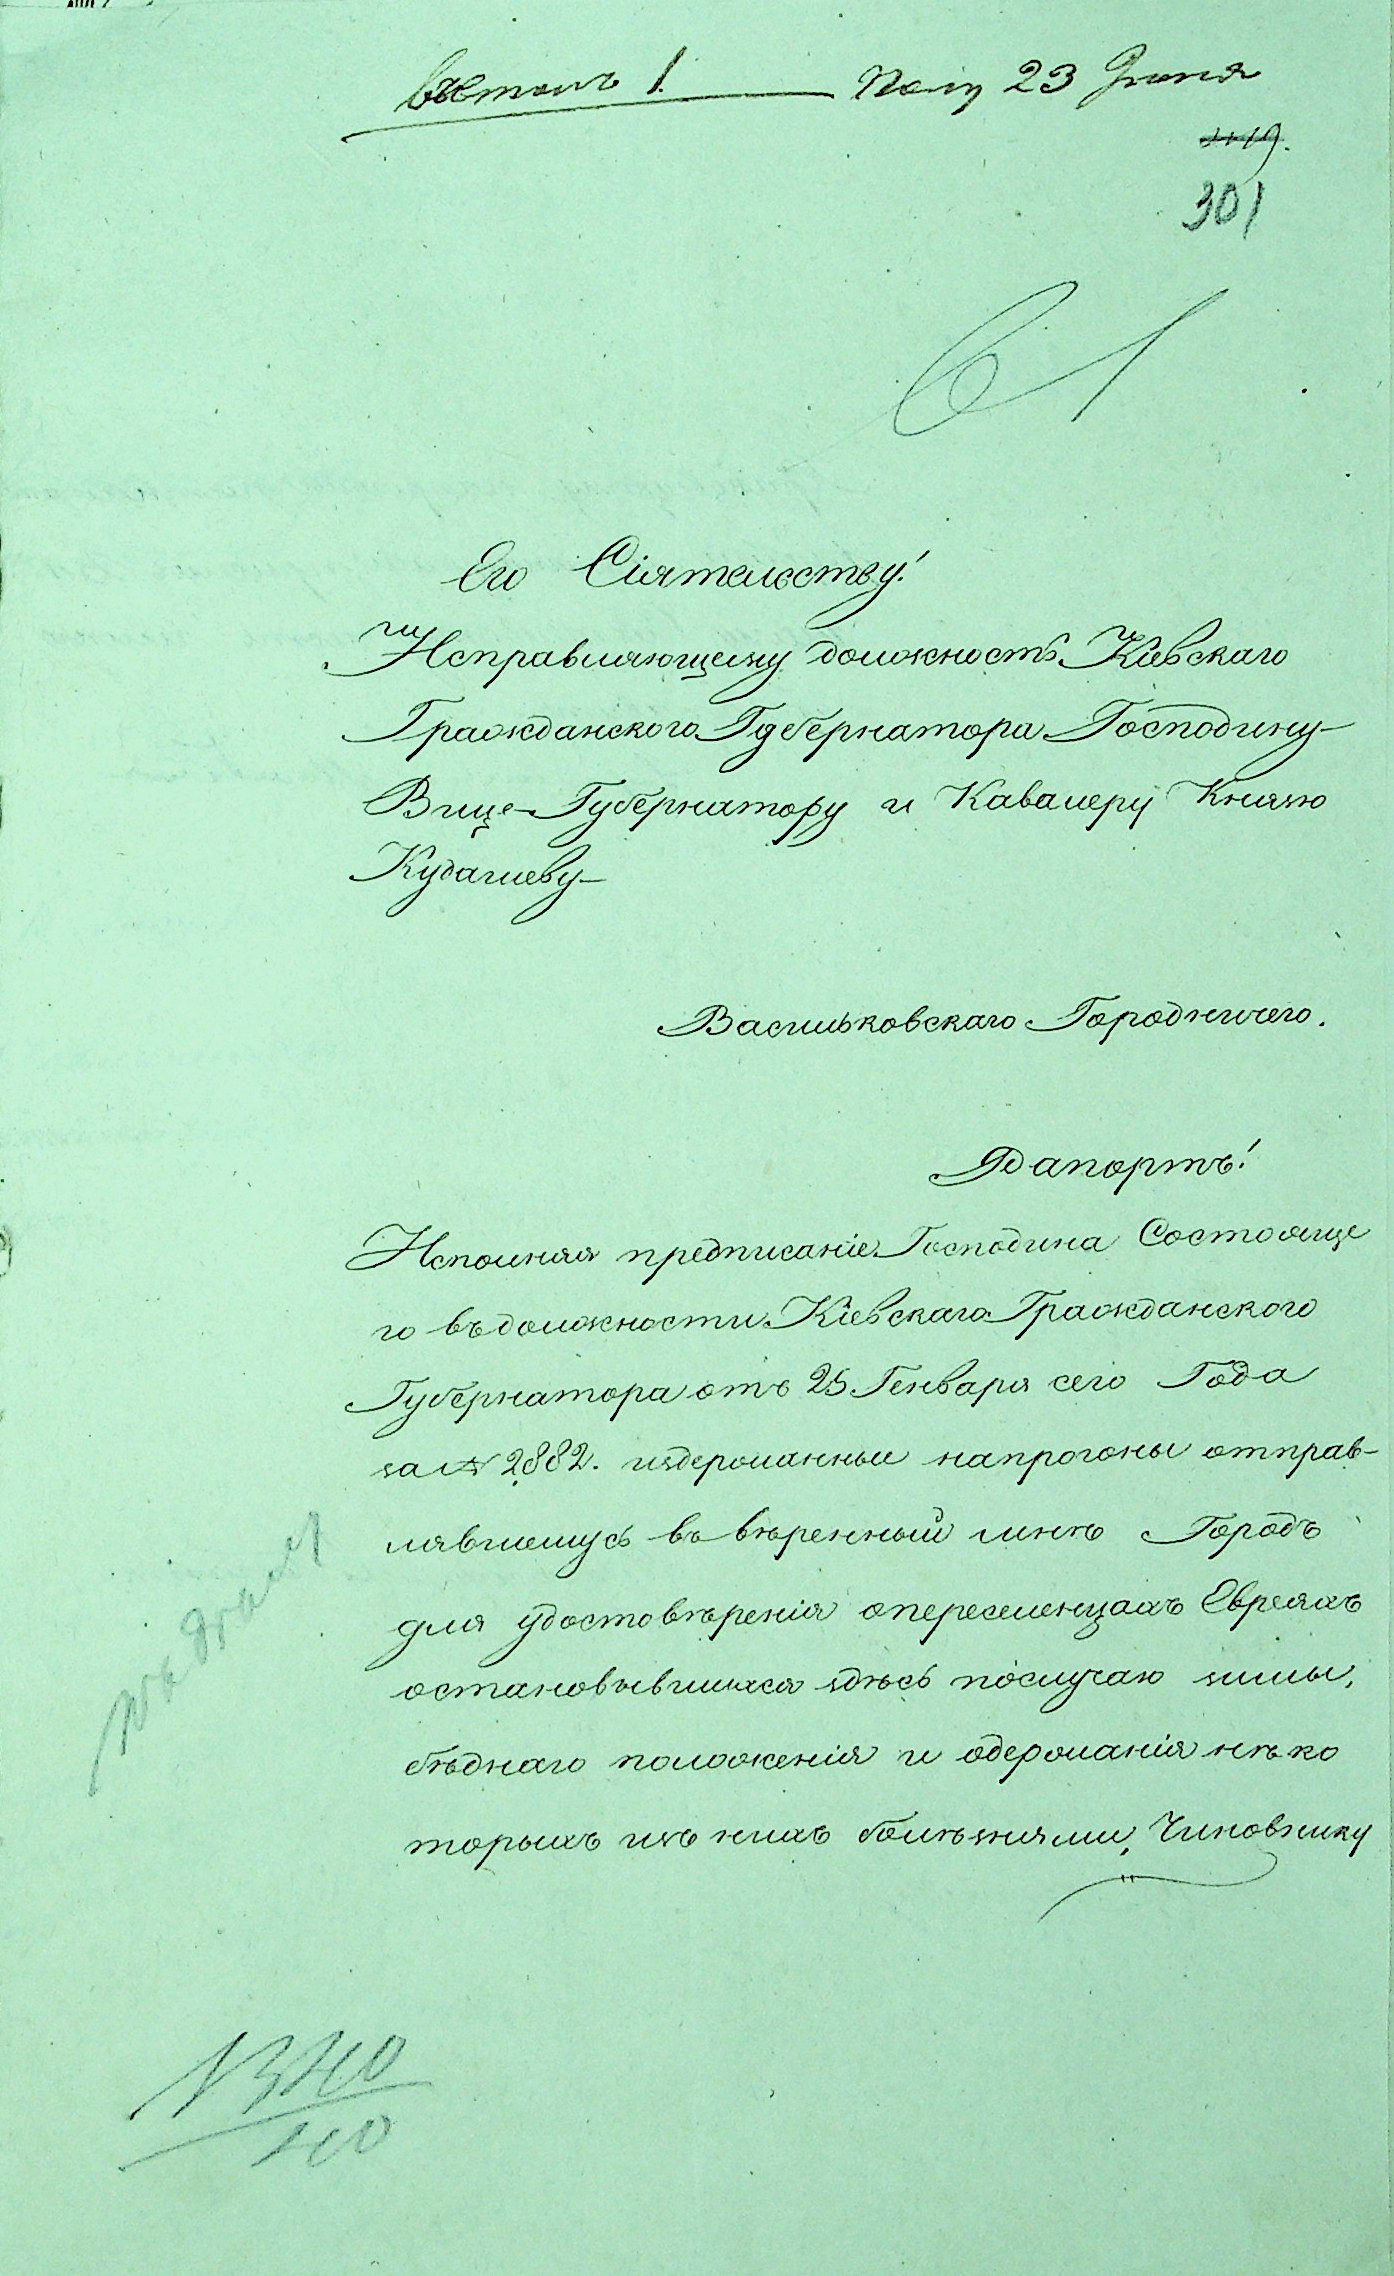 1. Полу 23 Июня
301
Его Сіятельству!
Исправляющему должность Кіевскаго
Гражданского Губернатора Господину
Вице-Губернатору и Кавалеру Князю
Кудашеву
Васильковскаго Городничего.
Рапортъ!
Исполняя предписаніе Господина Состояще
го въ должности Кіевскаго Гражданского
Губернатора отъ 25 Генваря сего Года
за № 2882. издержанныи на прогоны отправ-
лявшемусь въ вѣренный мнѣ Городъ
для удостовѣренія о переселенцахъ Евреяхъ
остановывшихся здѣсь по случаю зимы,
бѣднаго положенія и одержанія нѣко
торыхъ изъ нихъ болѣзнями, Чиновнику